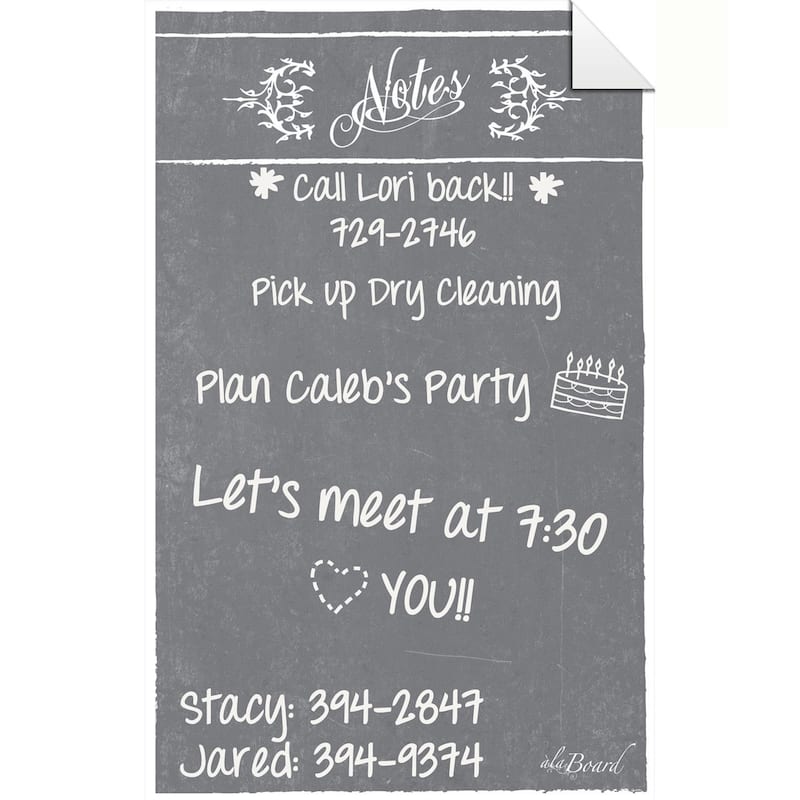 Notes
Call Lori back!!
729-2746
Pick up Dry Cleaning
Plan Caleb's Party
Let's meet at 7:30
YOU!!
Stacy: 394-2847
Jared: 394-9374
àlaBoard